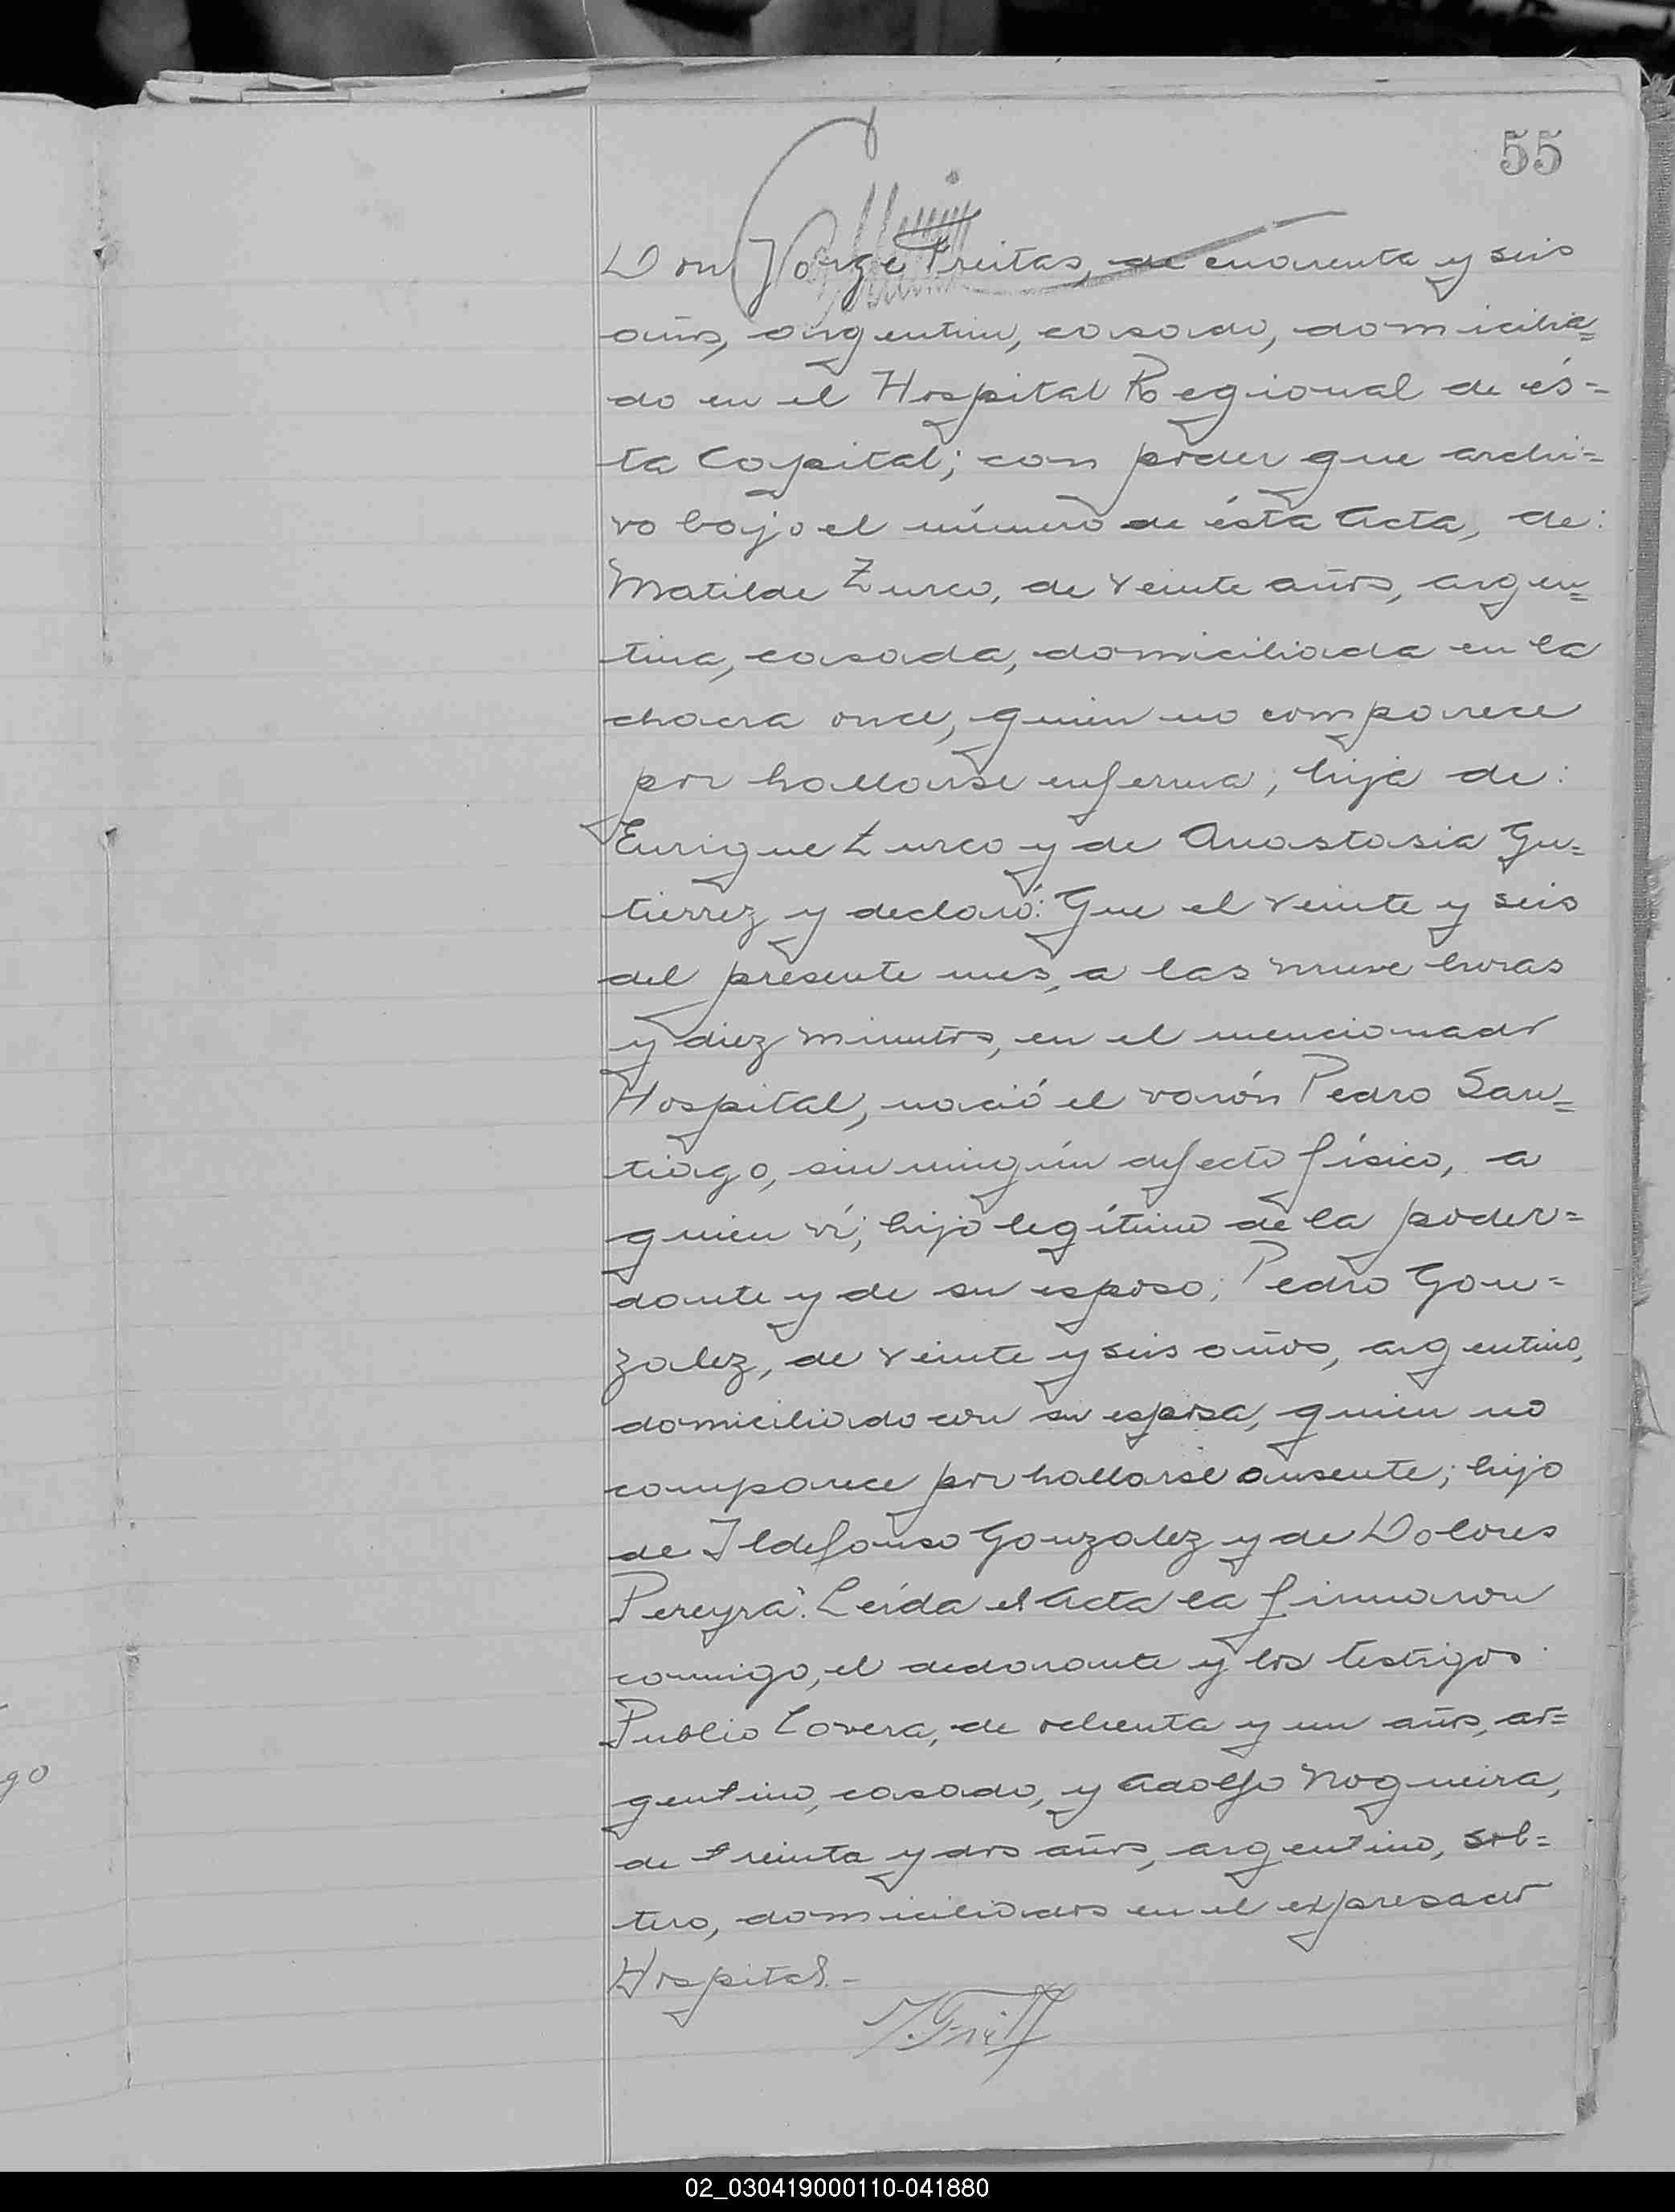 55
Don Jorge Freitas, de cuarenta y seis
años, argentino, casado, domicilia=
do en el Hospital Regional de és=
ta Capital; con poder que archi=
vo bajo el número de ésta Acta, de:
Matilde Zurco, de veinte años, argen=
tina, casada, domiciliada en la
chacra once, quien no comparece
por hallarse enferma; hija de:
Enrique Zurco y de Anastasia Gu=
tierrez y declaró: Que el veinte y seis
del presente mes, a las nueve horas
y diez minutos, en el mencionado
Hospital, nació el varón Pedro San=
tiago, sin ningún defecto físico, a
quien ví; hijo legítimo de la poder=
dante y de su esposo; Pedro Gon=
zalez, de veinte y seis años, argentino,
domiciliado con su esposa, quien no
comparece por hallarse ausente; hijo
de Ildefonso Gonzalez y de Dolores
Pereyra. Leída el Acta la firmaron
conmigo, el declarante y los testigos
Publio Lovera, de ochenta y un años, ar=
gentino, casado, y Adolfo Nogueira,
de treinta y dos años, argentino, sol=
tero, domiciliados en el expresado
Hospital.-
go
02_030419000110-041880